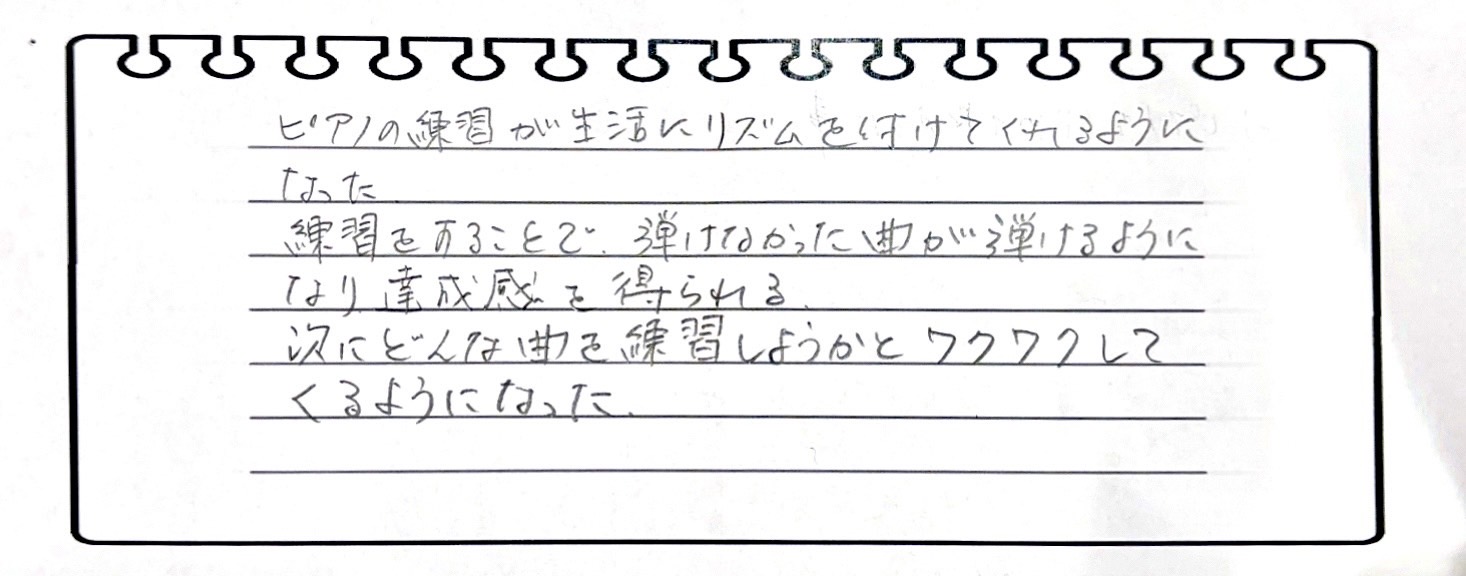 ピアノの練習が生活にリズムを付けてくれるように
なった
練習をすることで、弾けなかった曲が弾けるように
なり、達成感を得られる。
次にどんな曲を練習しようかとワクワクして
くるようになった。